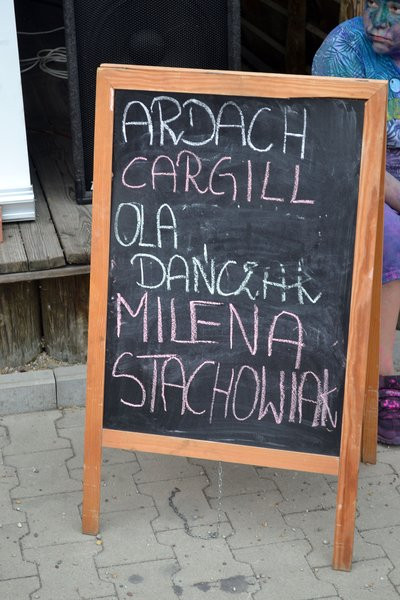 ARDACH
CARGILL
OLA
MILENA
STACHOWIAK